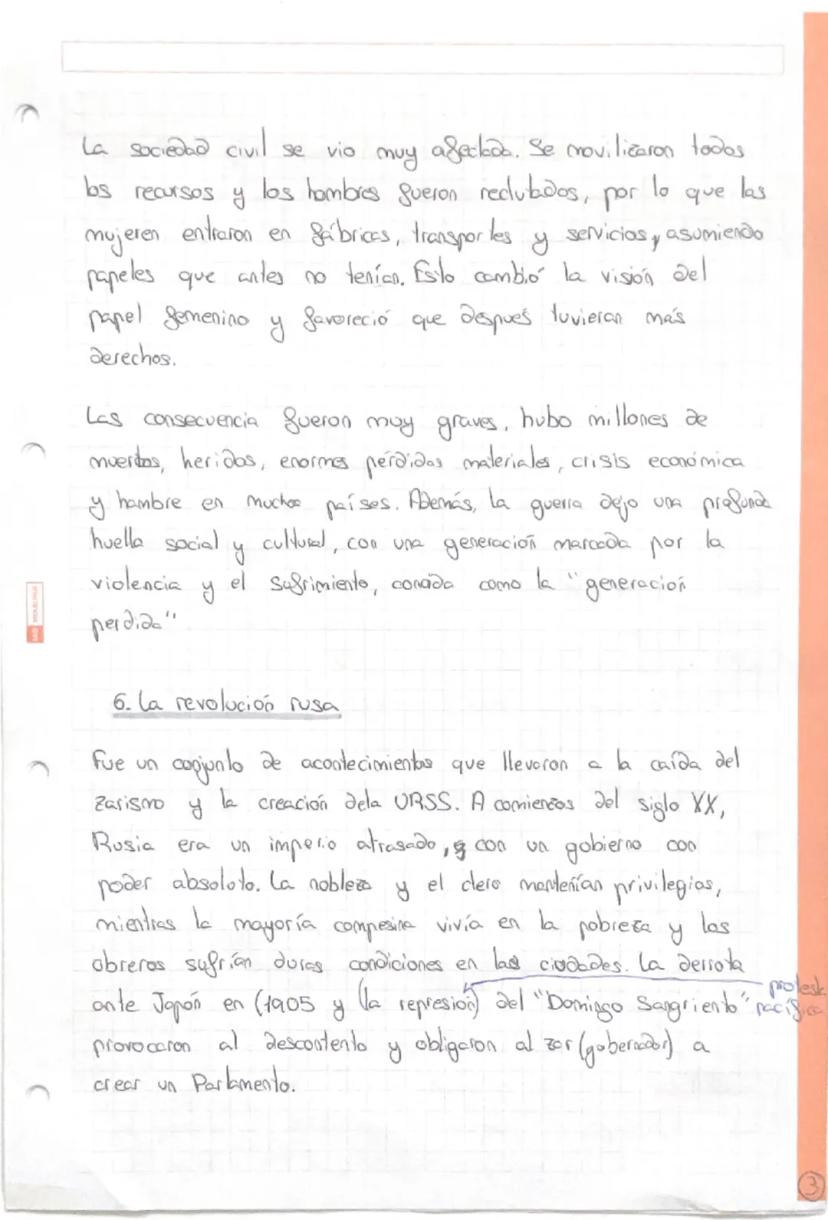 La sociedad civil se vio muy afectada. Se movilizaron todos
los recursos y los hombres fueron reclutados, por lo que las
mujeren entraron en fábricas, transportes y servicios, asumiendo
papeles que antes no tenían. Esto cambió la visión del
papel femenino y favoreció que después tuvieran más
derechos.
Las consecuencia fueron muy graves, hubo millones de
muertos, heridos, enormes pérdidas materiales, crisis económica
y hambre en muchos países. Además, la guerra dejo una profunda
huella social y cultural, con una generación marcada por la
violencia y el sufrimiento, conocida como la "generación
perdida"
6. La revolución rusa
Fue un conjunto de acontecimientos que llevaron a la caída del
zarismo y la creación dela URSS. A comienzos del siglo XX,
Rusia era un imperio atrasado, con un gobierno con
poder absoluto. La nobleza y el clero mantenían privilegios,
mientras la mayoría campesina vivía en la pobreza y los
obreros sufrían duras condiciones en las ciudades. La derrota
ante Japón en (1905 y (la represión) del "Domingo Sangriento" protesta pacífica
provocaron al descontento y obligaron al zar (gobernador) a
crear un Parlamento.
3